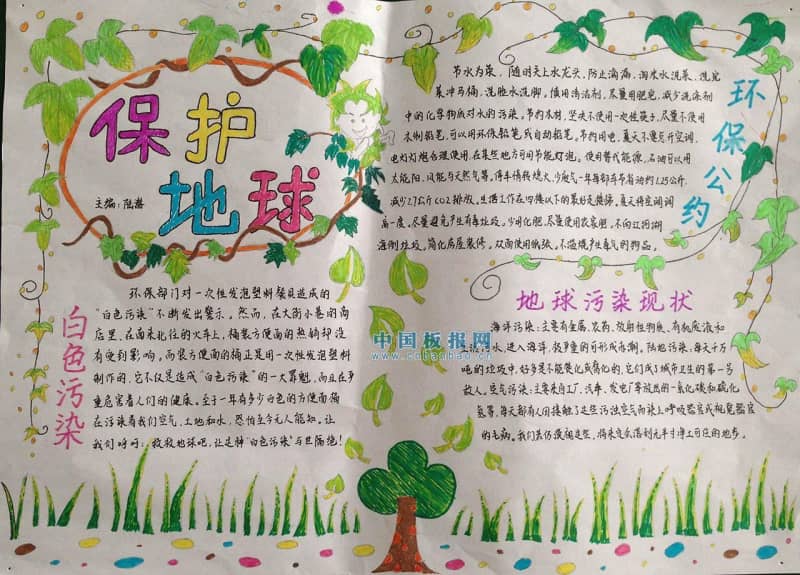 保护
地球
主编：陆潞
白色污染
环保部门对一次性发泡塑料餐具造成的
"白色污染"不断发出警示。然而，在大街小巷的商
店里，在南来北往的火车上，桶装方便面的热销却没
有受到影响。而装方便面的桶正是用一次性发泡塑料
制作的，它不仅是造成"白色污染"的一大罪魁，而且在严
重危害着人们的健康。至于一年有多少白色的方便面桶
在污染着我们空气、土地和水，恐怕至今无人能知。让
我们呼吁：救救地球吧，让这种"白色污染"与世隔绝！
环保公约
节水为荣，随时关上水龙头，防止滴漏，淘米水洗菜，洗完
菜冲马桶，洗脸水洗脚，慎用清洁剂，尽量用肥皂，减少洗涤剂
中的化学物质对水的污染。节约木材，坚决不使用一次性筷子，尽量不使用
木制铅笔，可以用环保铅笔或自动铅笔。节约用电，夏天不要总开空调，
电灯灯炮合理使用，在某些地方可用节能灯泡。使用替代能源，石油可以用
太阳能、风能与天然气等，停车请转熄火，少废气一年每部车节省油约1.25公斤，
减少2.7公斤CO2排放。生活工作在四楼以下的最好走楼梯，夏天将空调调
高一度。尽量避免产生有毒垃圾。少用化肥，尽量使用农家肥。不向江河湖
海倒垃圾。简化房屋装修。双面使用纸张。不燃烧产生毒气的物品。
地球污染现状
海洋污染：主要有金属、农药、放射性物质、有机废液和
水，进入海洋，很严重的可形成赤潮。陆地污染：每天千万
吨的垃圾中，好多是不能焚化或腐化的，它们成了城市卫生的第一号
敌人。空气污染：主要来自工厂、汽车、发电厂等放出的一氧化碳和硫化
氢等，每天都有人因接触了这些污浊空气而染上呼吸器官或视觉器官
的毛病。我们若仍漠视这些，将来变成落到无半寸净土可住的地步。
中国板报网
www.cnbanbao.cn